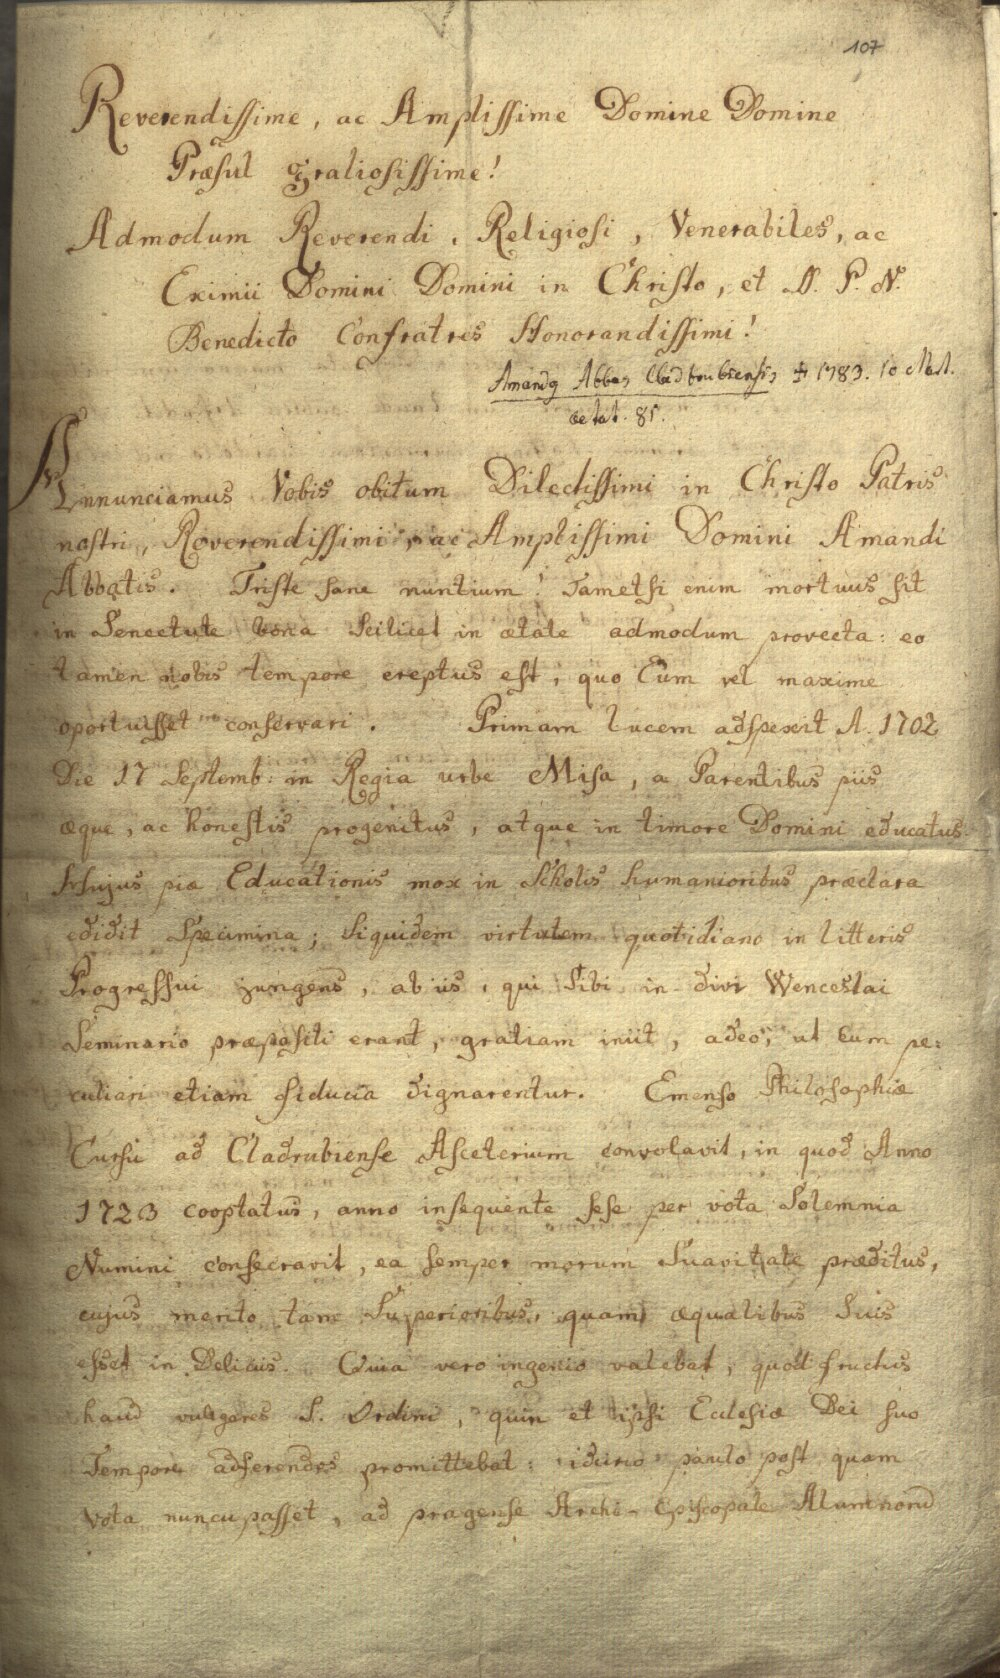 107
Reverendissime, ac Amplissime Domine Domine
Præsul gratiosissime!
Admodum Reverendi, Religiosi, Venerabiles, ac
Eximii Domini Domini in Christo, et S. P. N.
Benedicto Confratres Honorandissimi!
Amandq Abbas Cladrubiensis ✝ 1783. 10 Mart.
ætat. 81.
Annunciamus Vobis obitum Dilectissimi in Christo Patris
nostri, Reverendissimi, ac Amplissimi Domini Amandi
Abbatis. Triste sane nuntium! Tametsi enim mortuus sit
in Senectute bona Scilicet in ætate admodum provecta: eo
tamen nobis tempore ereptus est, quo Eum vel maxime
oportuisset conservari. Primam lucem adspexit A. 1702
Die 17 Septemb: in Regia urbe Misa, a Parentibus piis
æque, ac honestis progenitus, atque in timore Domini educatus.
Hujus piæ Educationis mox in Scholis humanioribus præclara
edidit Specimina; Siquidem virtutem quotidiano in litteris
Progressui jungens, ab iis, qui Sibi in divi Wenceslai
Seminario præpositi erant, gratiam iniit, adeo, ut Eum pe:
culiari etiam fiducia dignarentur. Emenso Philosophiæ
Cursu ad Cladrubiense Asceterium convolavit, in quod Anno
1723 cooptatus, anno insequente sese per vota Solemnia
Numini consecravit, ea semper morum Suavitate præditus,
cujus merito tam Superioribus, quam æqualibus Suis
esset in Deliciis. Quia vero ingenio valebat, quod fructus
haud vulgares S. Ordini, quin et ipsi Ecclesiæ Dei suo
Tempore adferendos promittebat: idcirco paulo post quam
Vota nuncupasset, ad pragense Archi-Episcopale Alumnorū